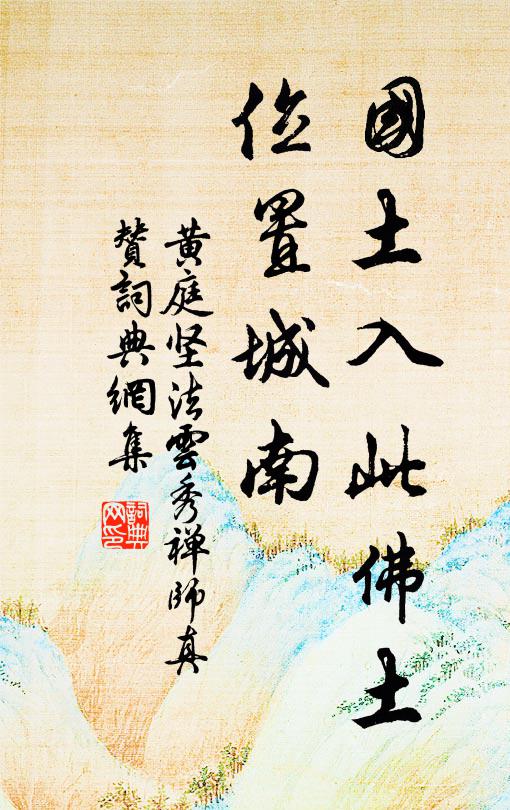 國土入此佛土
位置城南
黄庭坚法雲秀禅師真
贊詞典網集
詞典
网印